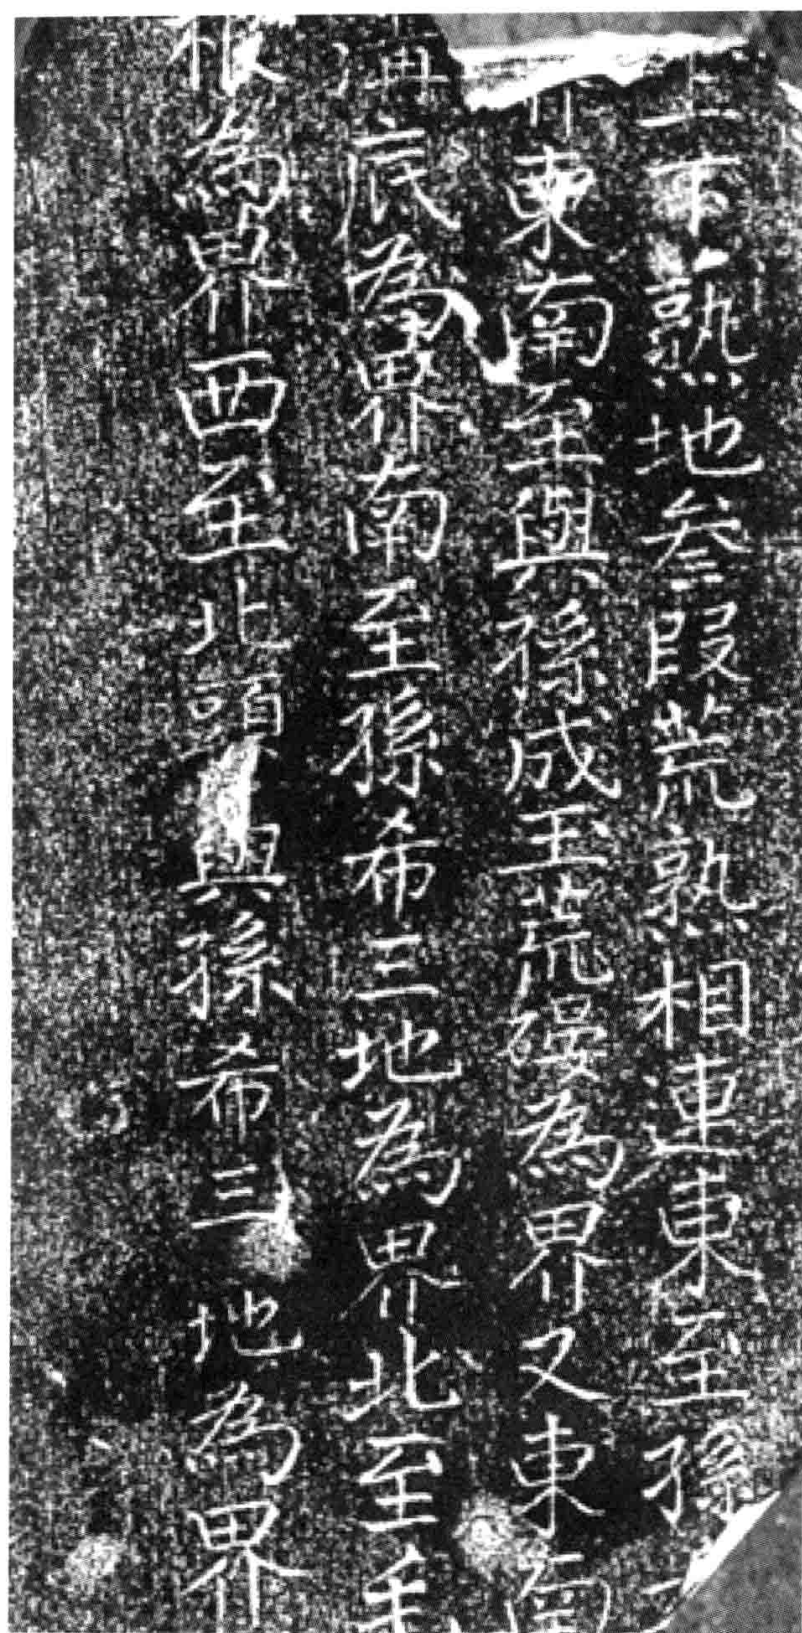 上下熟地叄段荒熟相連東至孫
界東南至與孫成玉荒磘為界又東南
溝底為界南至孫希三地為界北至毛
根為界西至北頭與孫希三地為界